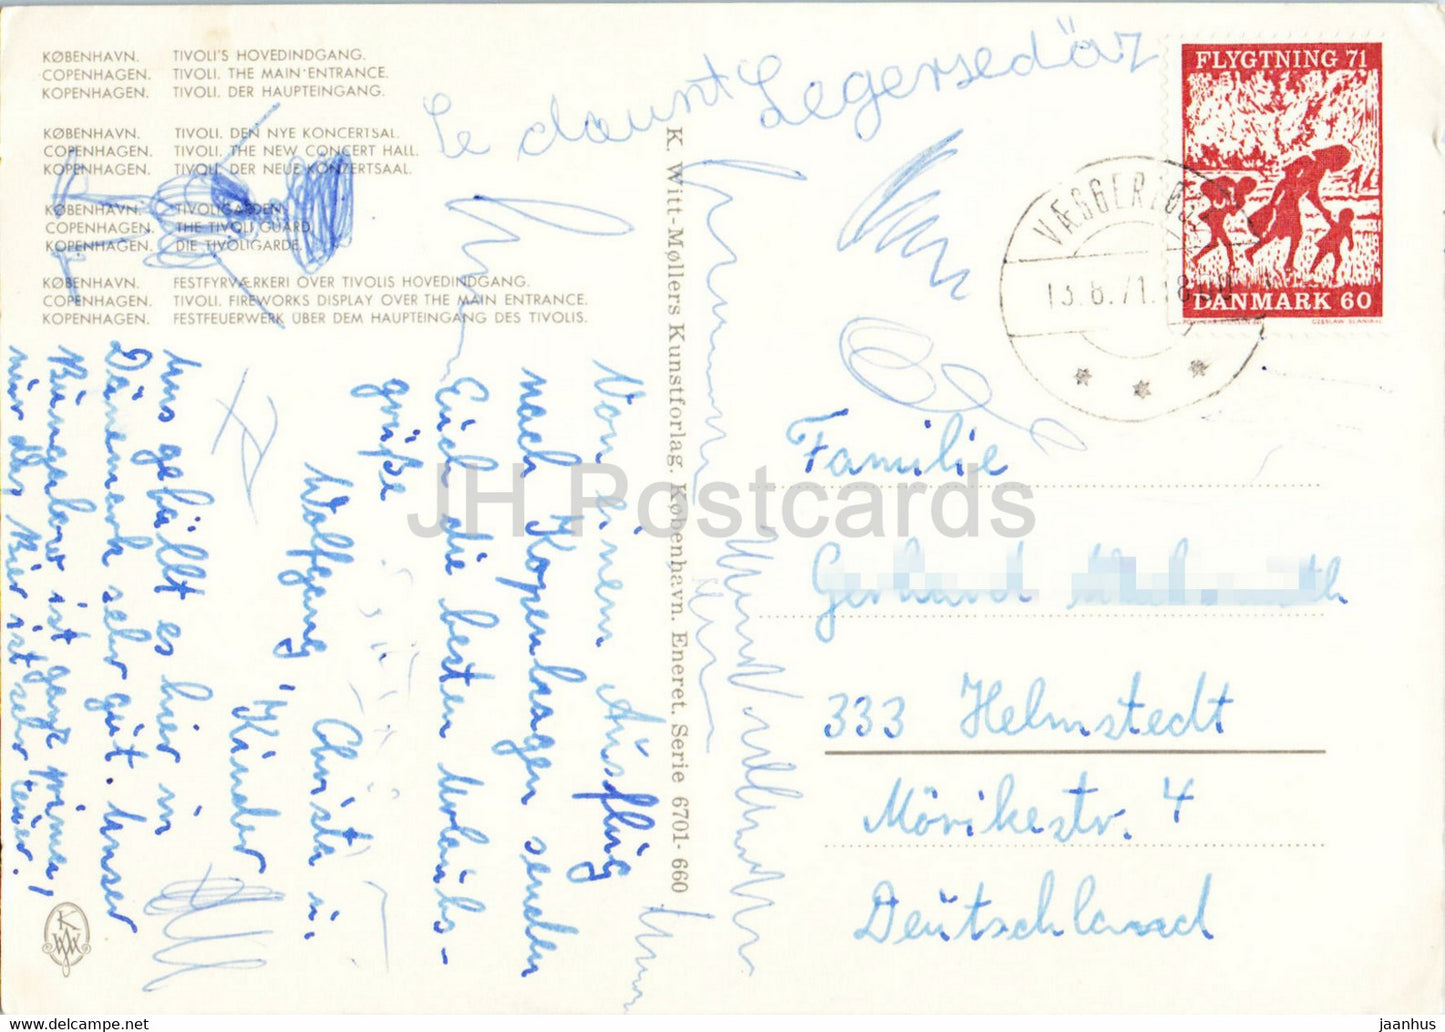 KØBENHAVN. TIVOLI'S HOVEDINDGANG.
COPENHAGEN. TIVOLI. THE MAIN ENTRANCE.
KOPENHAGEN. TIVOLI. DER HAUPTEINGANG.
KØBENHAVN. TIVOLI. DEN NYE KONCERTSAL.
COPENHAGEN. TIVOLI. THE NEW CONCERT HALL.
KOPENHAGEN. TIVOLI. DER NEUE KONZERTSAAL.
KØBENHAVN. TIVOLIGARDEN.
COPENHAGEN. THE TIVOLI GUARD.
KOPENHAGEN. DIE TIVOLIGARDE.
KØBENHAVN. FESTFYRVÆRKERI OVER TIVOLIS HOVEDINDGANG.
COPENHAGEN. TIVOLI. FIREWORKS DISPLAY OVER THE MAIN ENTRANCE.
KOPENHAGEN. FESTFEUERWERK ÜBER DEM HAUPTEINGANG DES TIVOLIS.
Von einem Ausflug
nach Kopenhagen senden
Euch die besten Urlaubs-
grüße
Wolfgang, Christa u.
Kinder
Uns gefällt es hier in
Dänemark sehr gut. Unser
Bungalow ist ganz prima,
nur das Bier ist sehr teuer.
K. Witt-Møllers Kunstforlag. København. Eneret. Serie 6701-660
FLYGTNING 71
DANMARK 60
CZESLAW SLANIA
13.8.71.18
Familie
Gerhard
333 Helmstedt
Mörikestr. 4
Deutschland
JH Postcards
jaanhus